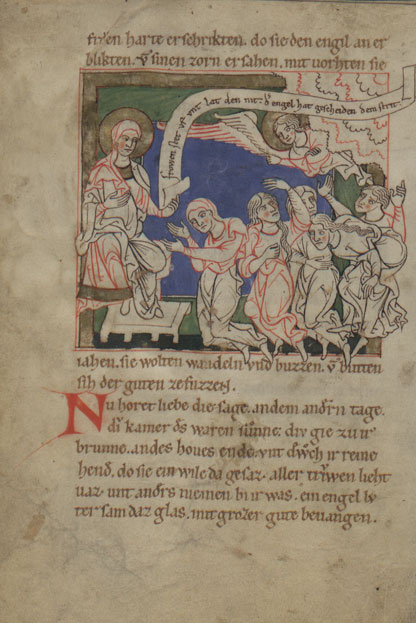 frŷen harte erschrikten. do sie den engil an er
blikten. v̄ sinen zorn ersahen. mit vorhten sie
stet vf vnt lat den nit. d' engel hat gescheiden den strit.
iahen. sie wolten wandeln vnd buzzen. v̄ buten
sih der guten ze fuzzen.
Nu horet liebe die sage. an dem andrn tage.
kamer waren diu gie zu ir
brunne. an des houes ende. vnt ir reine
hend. do sie ein wile da gesaz. aller triwen lieht
uaz. vnt andrs niemen bi ir was. ein engel lv
ter sam daz glas. mit grozer gute beuangen.